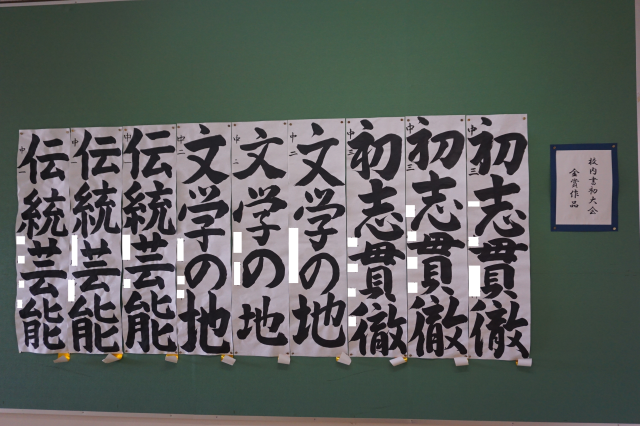 校内書初大会
金賞作品
中三
初志貫徹
中三
初志貫徹
中三
初志貫徹
中二
文学の地
中二
文学の地
中二
文学の地
中一
伝統芸能
中一
伝統芸能
中一
伝統芸能